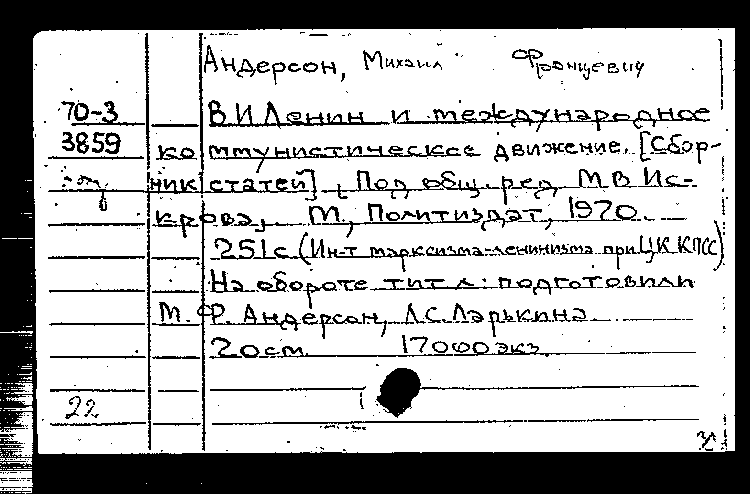 Андерсон, Михаил Францевич
70-3 В.И Ленин и международное
3859 коммунистическое движение. [Сбор-
ник статей]. Под общ. ред. М В Ис-
крова, М., Политиздат, 1970.
251с (Ин-т марксизма-ленинизма при ЦК КПСС)
На обороте тит л: подготовили
М. Ф. Андерсон, Л.С. Ларькина.
20см 17000 экз.
22